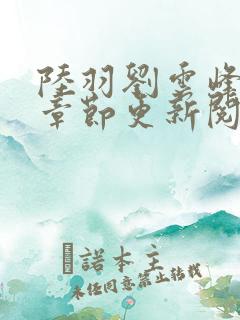 陸羽劉雲峰
章節更新閱
諾本主
未任同意禁止转載